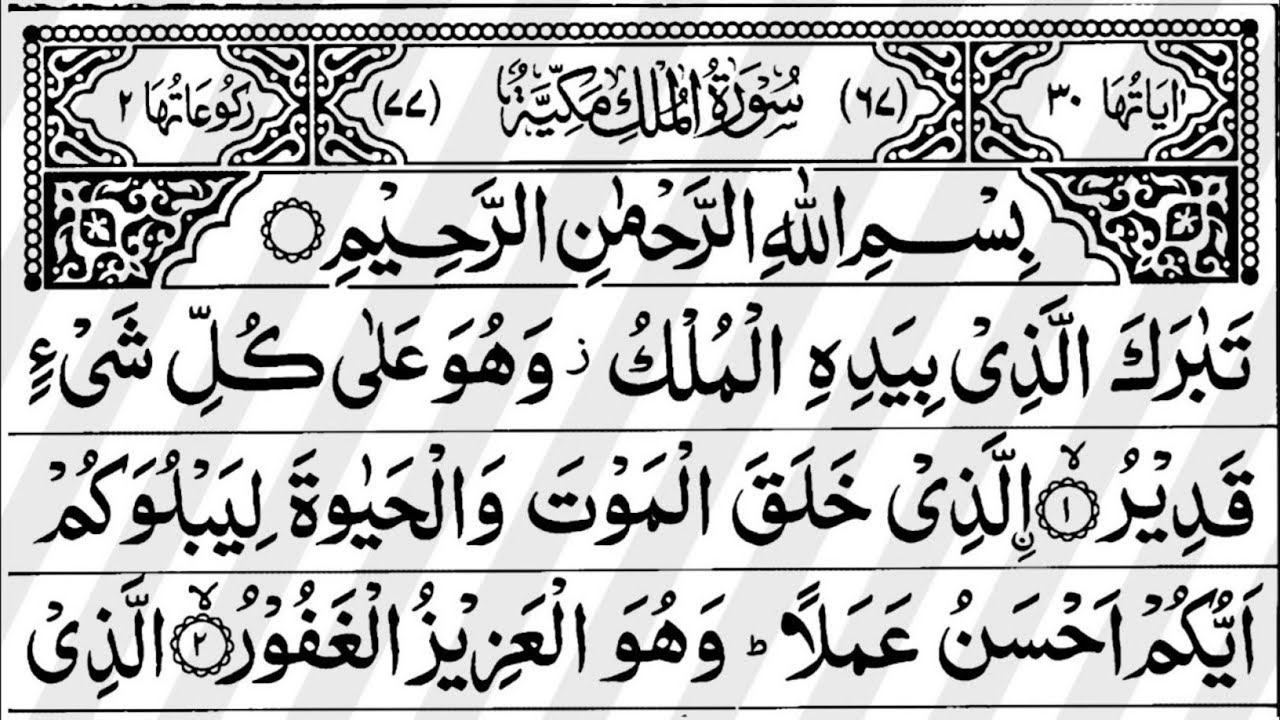 اٰيَاتُهَا ٣٠ (٦٧) سُوْرَةُ الْمُلْكِ مَكِّيَّةٌ (٧٧) رُكُوْعَاتُهَا ٢
بِسْمِ اللّٰهِ الرَّحْمٰنِ الرَّحِيْمِ
تَبٰرَكَ الَّذِىْ بِيَدِهِ الْمُلْكُ ز وَهُوَ عَلٰى كُلِّ شَىْءٍ
قَدِيْرُ ۙ‏﴿١﴾ اۨلَّذِىْ خَلَقَ الْمَوْتَ وَالْحَيٰوةَ لِيَبْلُوَكُمْ
اَيُّكُمْ اَحْسَنُ عَمَلًا ؕ وَهُوَ الْعَزِيْزُ الْغَفُوْرُ ۙ‏﴿٢﴾ الَّذِىْ